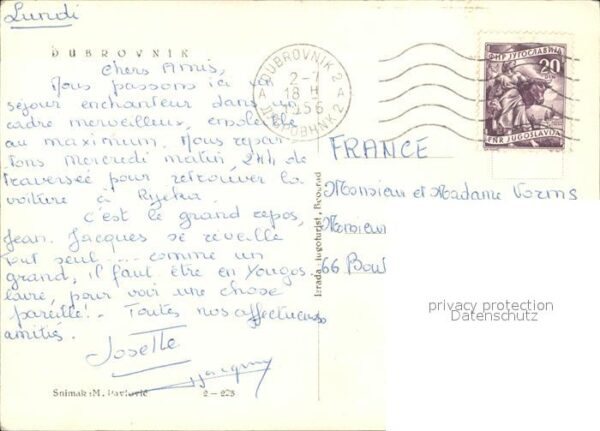 Lundi
DUBROVNIK
Chers Amis,
Nous passons ici un
séjour enchanteur dans un
cadre merveilleux, ensoleillé
au maximum. Nous repar
tons mercredi matin 24h de
traversée pour retrouver la
voiture à Rijeka.
C'est le grand repos,
Jean-Jacques se réveille
tout seul .... comme un
grand, il faut être en Yougos
lavie, pour voir une chose
pareille! - Toutes nos affectueuses
amitiés.
Josette
Jacques
Snimak: M. Pavlović
2 - 225
Izrada: Jugoturist, Beograd
DUBROVNIK 2
2-7
18 H
1956
ДУБРОВНИК 2
ФНР ЈУГОСЛАВИЈА
20
FNR JUGOSLAVIJA
FRANCE
Monsieur et Madame Vorms
Monsieur
66 Boul
privacy protection
Datenschutz